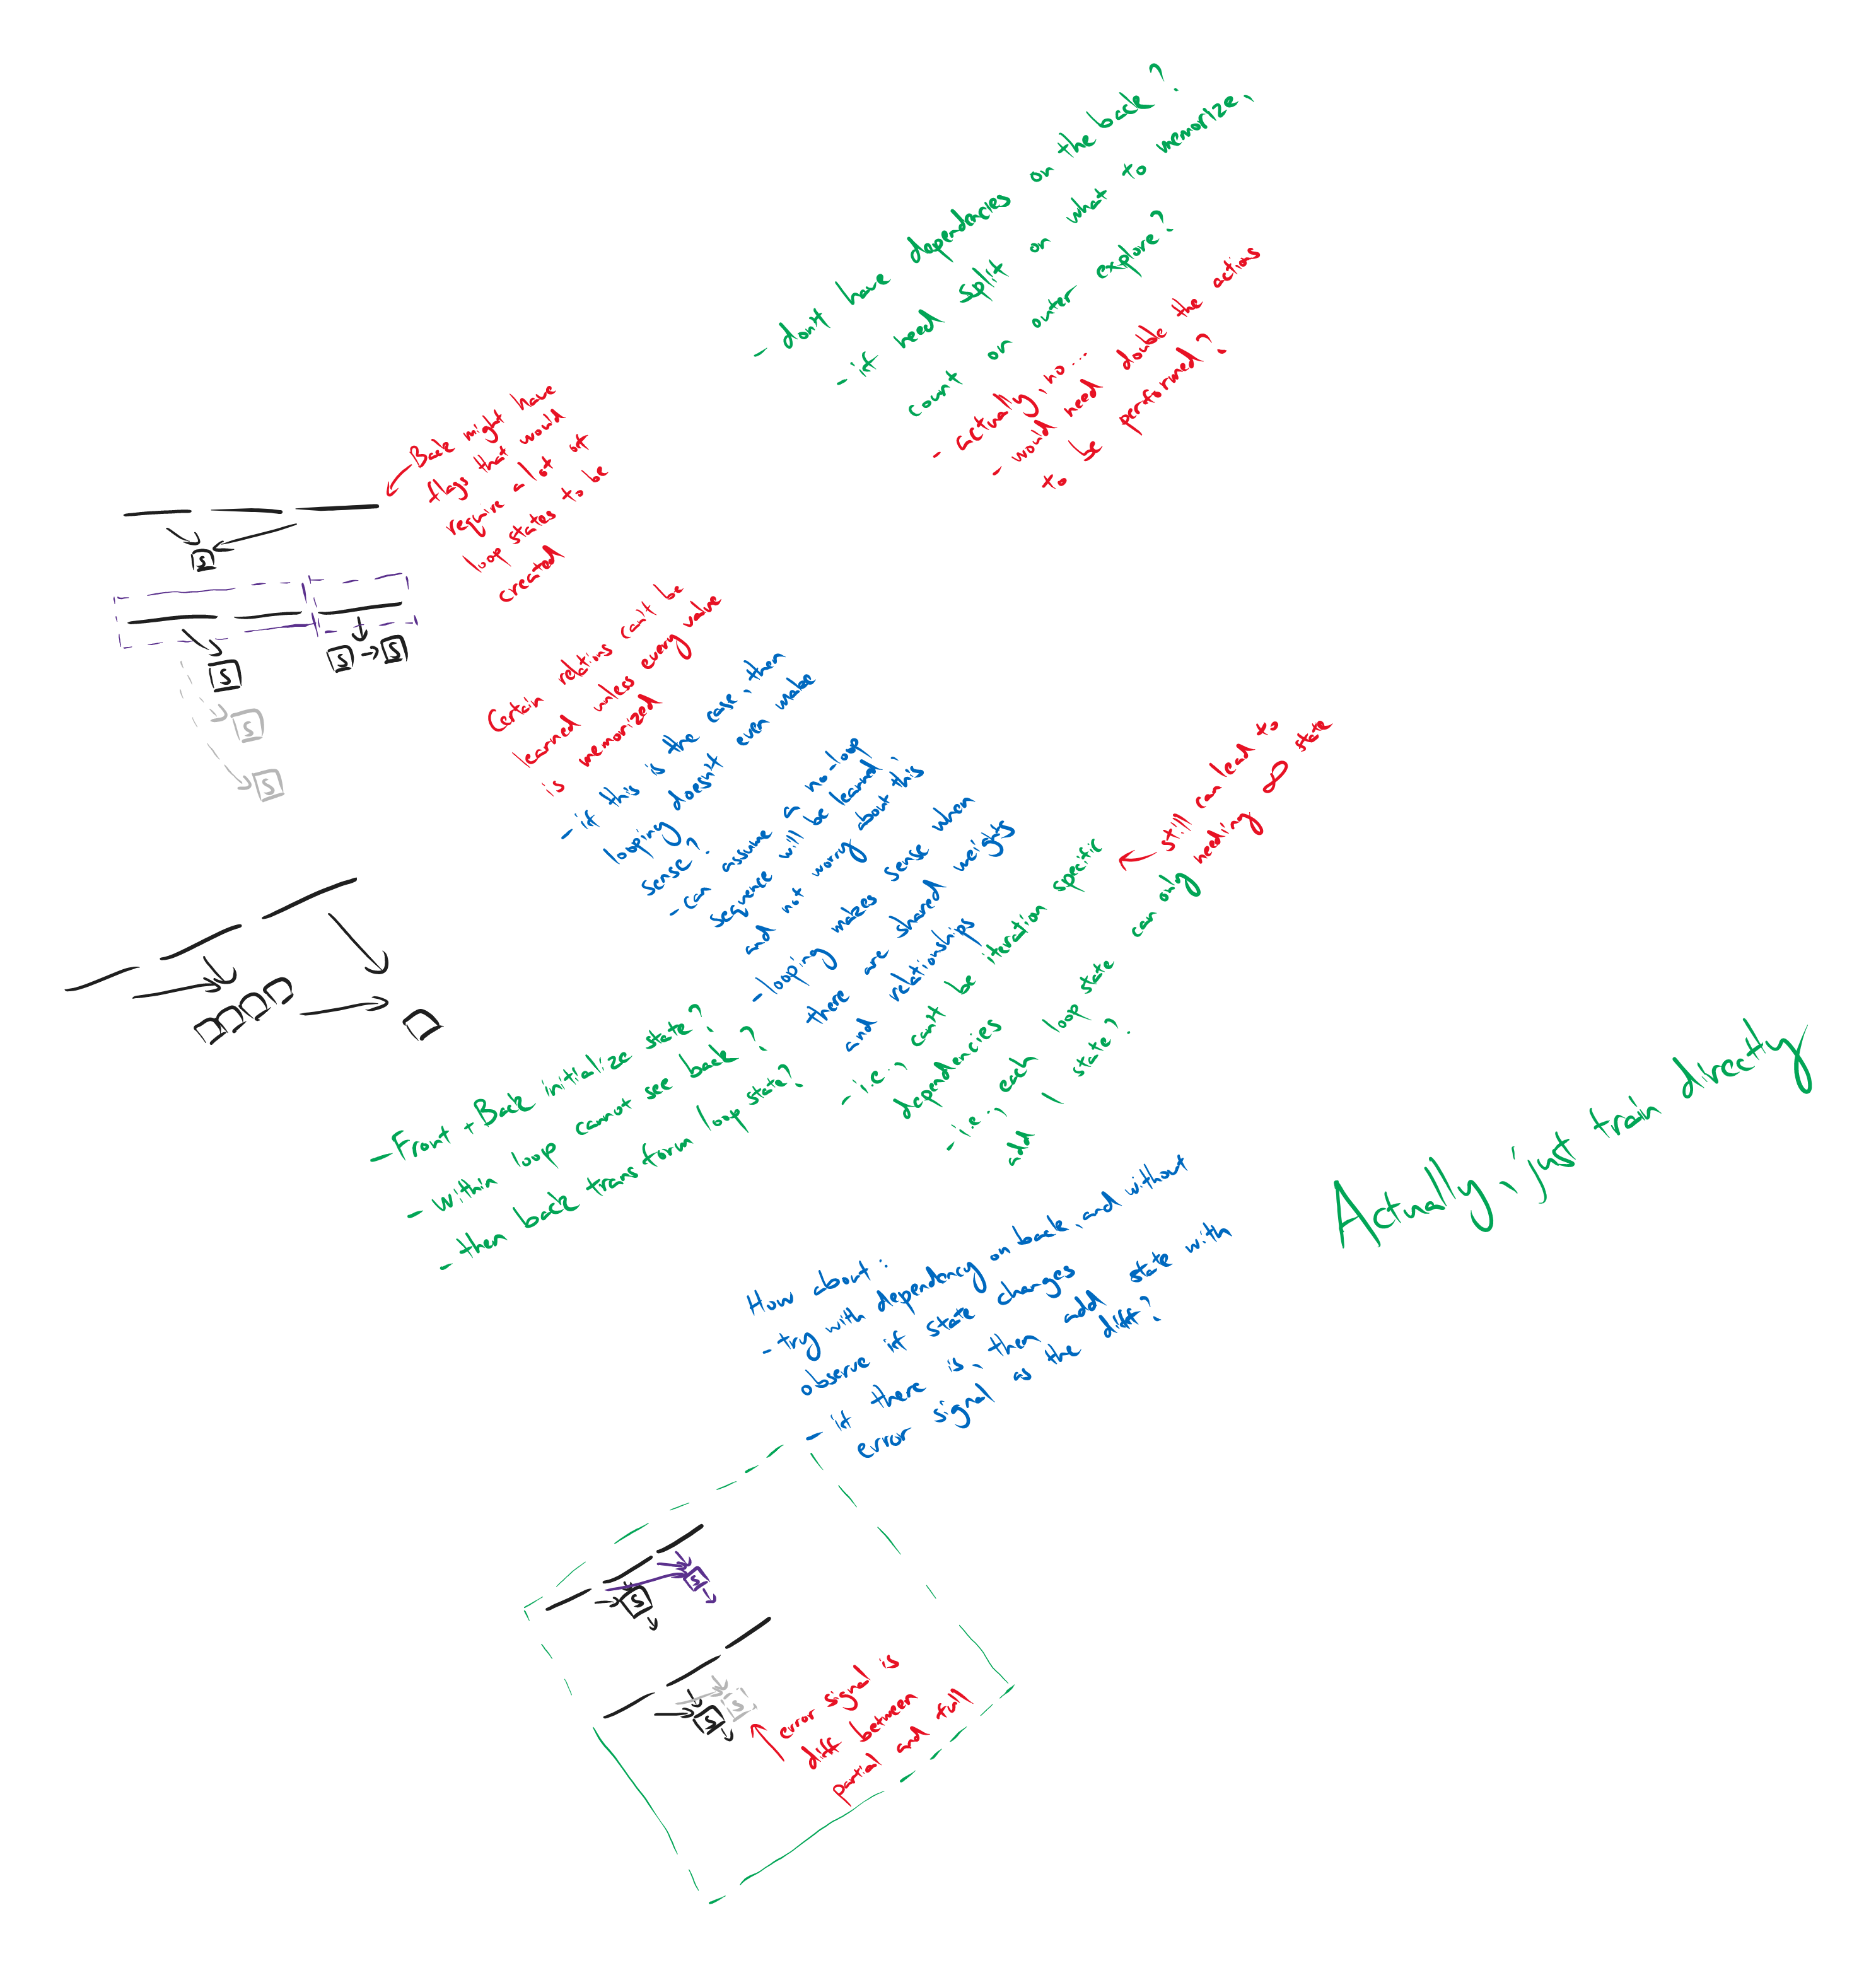 - don't have dependencies on the back?
- if need split on what to memorize,
count on outer explore?
- actually, no...
- would need double the actions
to be performed?
Back might have
flags that would
require a lot of
loop states to be
created
S
S
S
S
S
S
Certain relations can't be
learned unless every value
is memorized
- if this is the case, then
looping doesn't even make
sense?
- can assume a no-loop
sequence will be learned,
and not worry about this
- looping makes sense when
there are shared weights
and relationships
- i.e., can't be iteration specific
dependencies
- i.e., each loop state can only
add 1 state?
still can lead to
needing 8 state
- Front + Back initialize state?
- within loop cannot see back?
- then back transform loop state?
Actually, just train directly
How about:
- try with dependency on back, and without
observe if state changes
- if there is, then add state with
error signal as the diff?
S
S
S
S
error signal is
diff between
partial and full